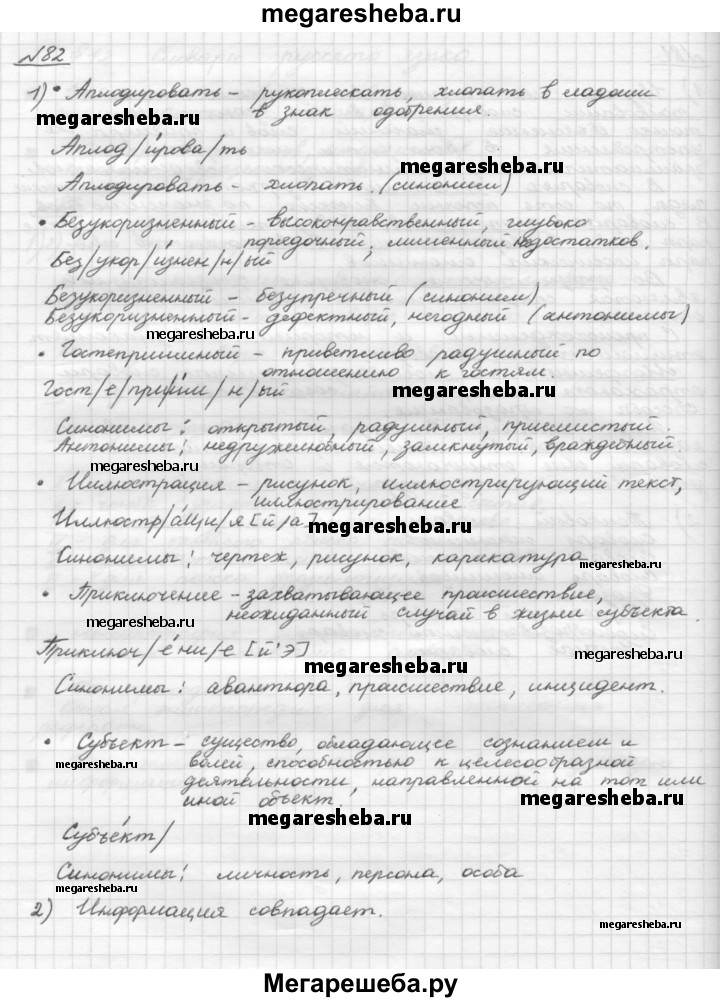 megaresheba.ru
№82
1) • Аплодировать – рукоплескать, хлопать в ладоши
в знак одобрения.
megaresheba.ru
Аплод/и́рова/ть
megaresheba.ru
Аплодировать – хлопать. (синоним)
• Безукоризненный – высоконравственный, глубоко
порядочный; лишенный недостатков.
Без/укор/и́знен/н/ый
Безукоризненный – безупречный (синоним)
Безукоризненный – дефектный, негодный (антонимы)
megaresheba.ru
• Гостеприимный – приветливо радушный по
отношению к гостям.
Гост/е/при/и́м/н/ый
megaresheba.ru
Синонимы: открытый, радушный, приемистый.
Антонимы: недружелюбный, замкнутый, враждебный.
megaresheba.ru
• Иллюстрация – рисунок, иллюстрирующий текст,
иллюстрирование
Иллюстр/а́ци/я [й/а]
megaresheba.ru
Синонимы: чертеж, рисунок, карикатура
megaresheba.ru
• Приключение – захватывающее происшествие,
неожиданный случай в жизни субъекта.
megaresheba.ru
Приключ/е́ни/е [й'э]
megaresheba.ru
megaresheba.ru
Синонимы: авантюра, происшествие, инцидент.
• Субъект – существо, обладающее сознанием и
волей, способностью к целесообразной
megaresheba.ru
деятельности, направленной на тот или
иной объект.
megaresheba.ru
megaresheba.ru
Субъе́кт/
Синонимы: личность, персона, особа
megaresheba.ru
2) Информация совпадает.
megaresheba.ru
Мегарешеба.ру